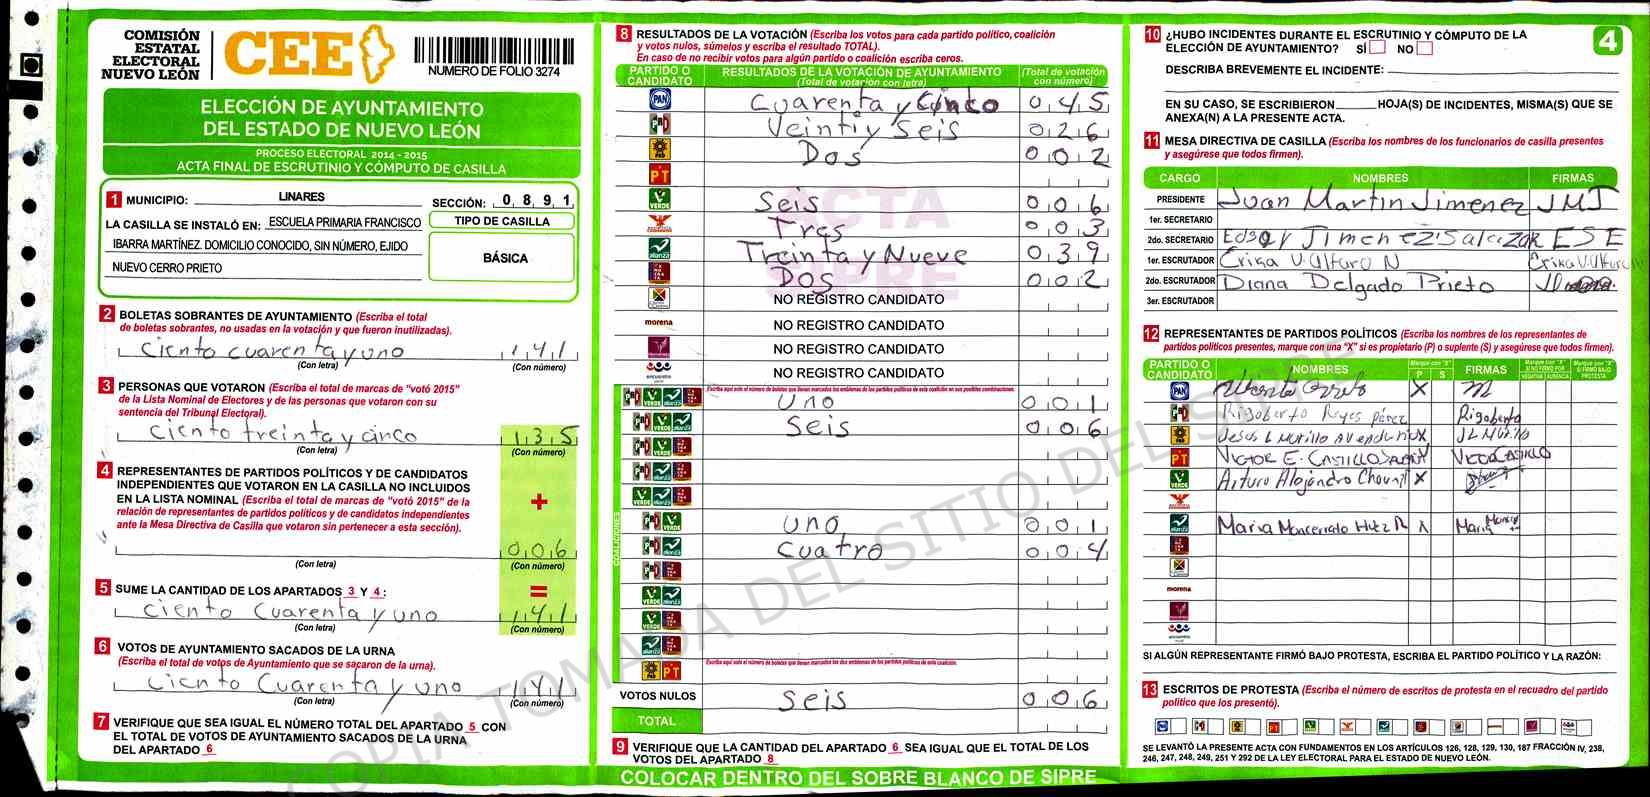 COMISIÓN
ESTATAL
ELECTORAL
NUEVO LEÓN
CEE
NUMERO DE FOLIO 3274
ELECCIÓN DE AYUNTAMIENTO
DEL ESTADO DE NUEVO LEÓN
PROCESO ELECTORAL 2014 - 2015
ACTA FINAL DE ESCRUTINIO Y CÓMPUTO DE CASILLA
1 MUNICIPIO: LINARES SECCIÓN: 0 8 9 1
LA CASILLA SE INSTALÓ EN: ESCUELA PRIMARIA FRANCISCO
IBARRA MARTÍNEZ. DOMICILIO CONOCIDO, SIN NÚMERO, EJIDO
NUEVO CERRO PRIETO
TIPO DE CASILLA
BÁSICA
2 BOLETAS SOBRANTES DE AYUNTAMIENTO (Escriba el total
de boletas sobrantes, no usadas en la votación y que fueron inutilizadas).
Ciento cuarenta y uno 1 4 1
(Con letra) (Con número)
3 PERSONAS QUE VOTARON (Escriba el total de marcas de "votó 2015"
de la Lista Nominal de Electores y de las personas que votaron con su
sentencia del Tribunal Electoral).
Ciento treinta y cinco 1 3 5
(Con letra) (Con número)
4 REPRESENTANTES DE PARTIDOS POLÍTICOS Y DE CANDIDATOS
INDEPENDIENTES QUE VOTARON EN LA CASILLA NO INCLUIDOS
EN LA LISTA NOMINAL (Escriba el total de marcas de "votó 2015" de la
relación de representantes de partidos políticos y de candidatos independientes
ante la Mesa Directiva de Casilla que votaron sin pertenecer a esta sección).
+
0 0 6
(Con letra) (Con número)
5 SUME LA CANTIDAD DE LOS APARTADOS 3 Y 4: =
Ciento Cuarenta y uno 1 4 1
(Con letra) (Con número)
6 VOTOS DE AYUNTAMIENTO SACADOS DE LA URNA
(Escriba el total de votos de Ayuntamiento que se sacaron de la urna).
Ciento Cuarenta y uno 1 4 1
(Con letra) (Con número)
7 VERIFIQUE QUE SEA IGUAL EL NÚMERO TOTAL DEL APARTADO 5 CON
EL TOTAL DE VOTOS DE AYUNTAMIENTO SACADOS DE LA URNA
DEL APARTADO 6
8 RESULTADOS DE LA VOTACIÓN (Escriba los votos para cada partido político, coalición
y votos nulos, súmelos y escriba el resultado TOTAL).
En caso de no recibir votos para algún partido o coalición escriba ceros.
PARTIDO O CANDIDATO
RESULTADOS DE LA VOTACIÓN DE AYUNTAMIENTO
(Total de votación con letra)
(Total de votación con número)
PAN Cuarenta y Cinco 0 4 5
PRD Veinti y Seis 0 2 6
PRD Dos 0 0 2
PT
VERDE Seis 0 0 6
Tres 0 0 3
alianza Treinta y Nueve 0 3 9
DOS 0 0 2
NO REGISTRO CANDIDATO
morena NO REGISTRO CANDIDATO
NO REGISTRO CANDIDATO
encuentro social NO REGISTRO CANDIDATO
ACTA
SIPRE
COALICIONES
Escriba aquí solo el número de boletas que tienen marcados los emblemas de los partidos políticos de esta coalición en sus posibles combinaciones.
Uno 0 0 1
Seis 0 0 6
uno 0 0 1
Cuatro 0 0 4
Escriba aquí solo el número de boletas que tienen marcados los dos emblemas de los partidos políticos de esta coalición.
PT
VOTOS NULOS Seis 0 0 6
TOTAL
9 VERIFIQUE QUE LA CANTIDAD DEL APARTADO 6 SEA IGUAL QUE EL TOTAL DE LOS
VOTOS DEL APARTADO 8
COLOCAR DENTRO DEL SOBRE BLANCO DE SIPRE
10 ¿HUBO INCIDENTES DURANTE EL ESCRUTINIO Y CÓMPUTO DE LA
ELECCIÓN DE AYUNTAMIENTO? SÍ NO
4
DESCRIBA BREVEMENTE EL INCIDENTE:
EN SU CASO, SE ESCRIBIERON HOJA(S) DE INCIDENTES, MISMA(S) QUE SE
ANEXA(N) A LA PRESENTE ACTA.
11 MESA DIRECTIVA DE CASILLA (Escriba los nombres de los funcionarios de casilla presentes
y asegúrese que todos firmen).
CARGO NOMBRES FIRMAS
PRESIDENTE Juan Martin Jimenez JMJ
1er. SECRETARIO
2do. SECRETARIO Edgar Jimenez Salazar ESE
1er. ESCRUTADOR Erika V. N Erika V.
2do. ESCRUTADOR Diana Delgado Prieto
3er. ESCRUTADOR
12 REPRESENTANTES DE PARTIDOS POLÍTICOS (Escriba los nombres de los representantes de
partidos políticos presentes, marque con una "X" si es propietario (P) o suplente (S) y asegúrese que todos firmen).
PARTIDO O CANDIDATO NOMBRES Marque con "X" P S FIRMAS Marque con "X" SI NO FIRMÓ POR NEGATIVA AUSENCIA Marque con "X" SI FIRMÓ BAJO PROTESTA
PAN X
Rigoberto Reyes Pérez Rigoberto
Jesus L Murillo Avendu X JL Murillo
PT VICTOR E. CASTILLO X VICTOR CASTILLO
VERDE Arturo Alejandro X
alianza Maria Moncerrato Htz R X Maria Monce
morena
SI ALGÚN REPRESENTANTE FIRMÓ BAJO PROTESTA, ESCRIBA EL PARTIDO POLÍTICO Y LA RAZÓN:
13 ESCRITOS DE PROTESTA (Escriba el número de escritos de protesta en el recuadro del partido
político que los presentó).
SE LEVANTÓ LA PRESENTE ACTA CON FUNDAMENTOS EN LOS ARTÍCULOS 126, 128, 129, 130, 187 FRACCIÓN IV, 238,
246, 247, 248, 249, 251 Y 292 DE LA LEY ELECTORAL PARA EL ESTADO DE NUEVO LEÓN.
COPIA TOMADA DEL SITIO DEL SIPRE